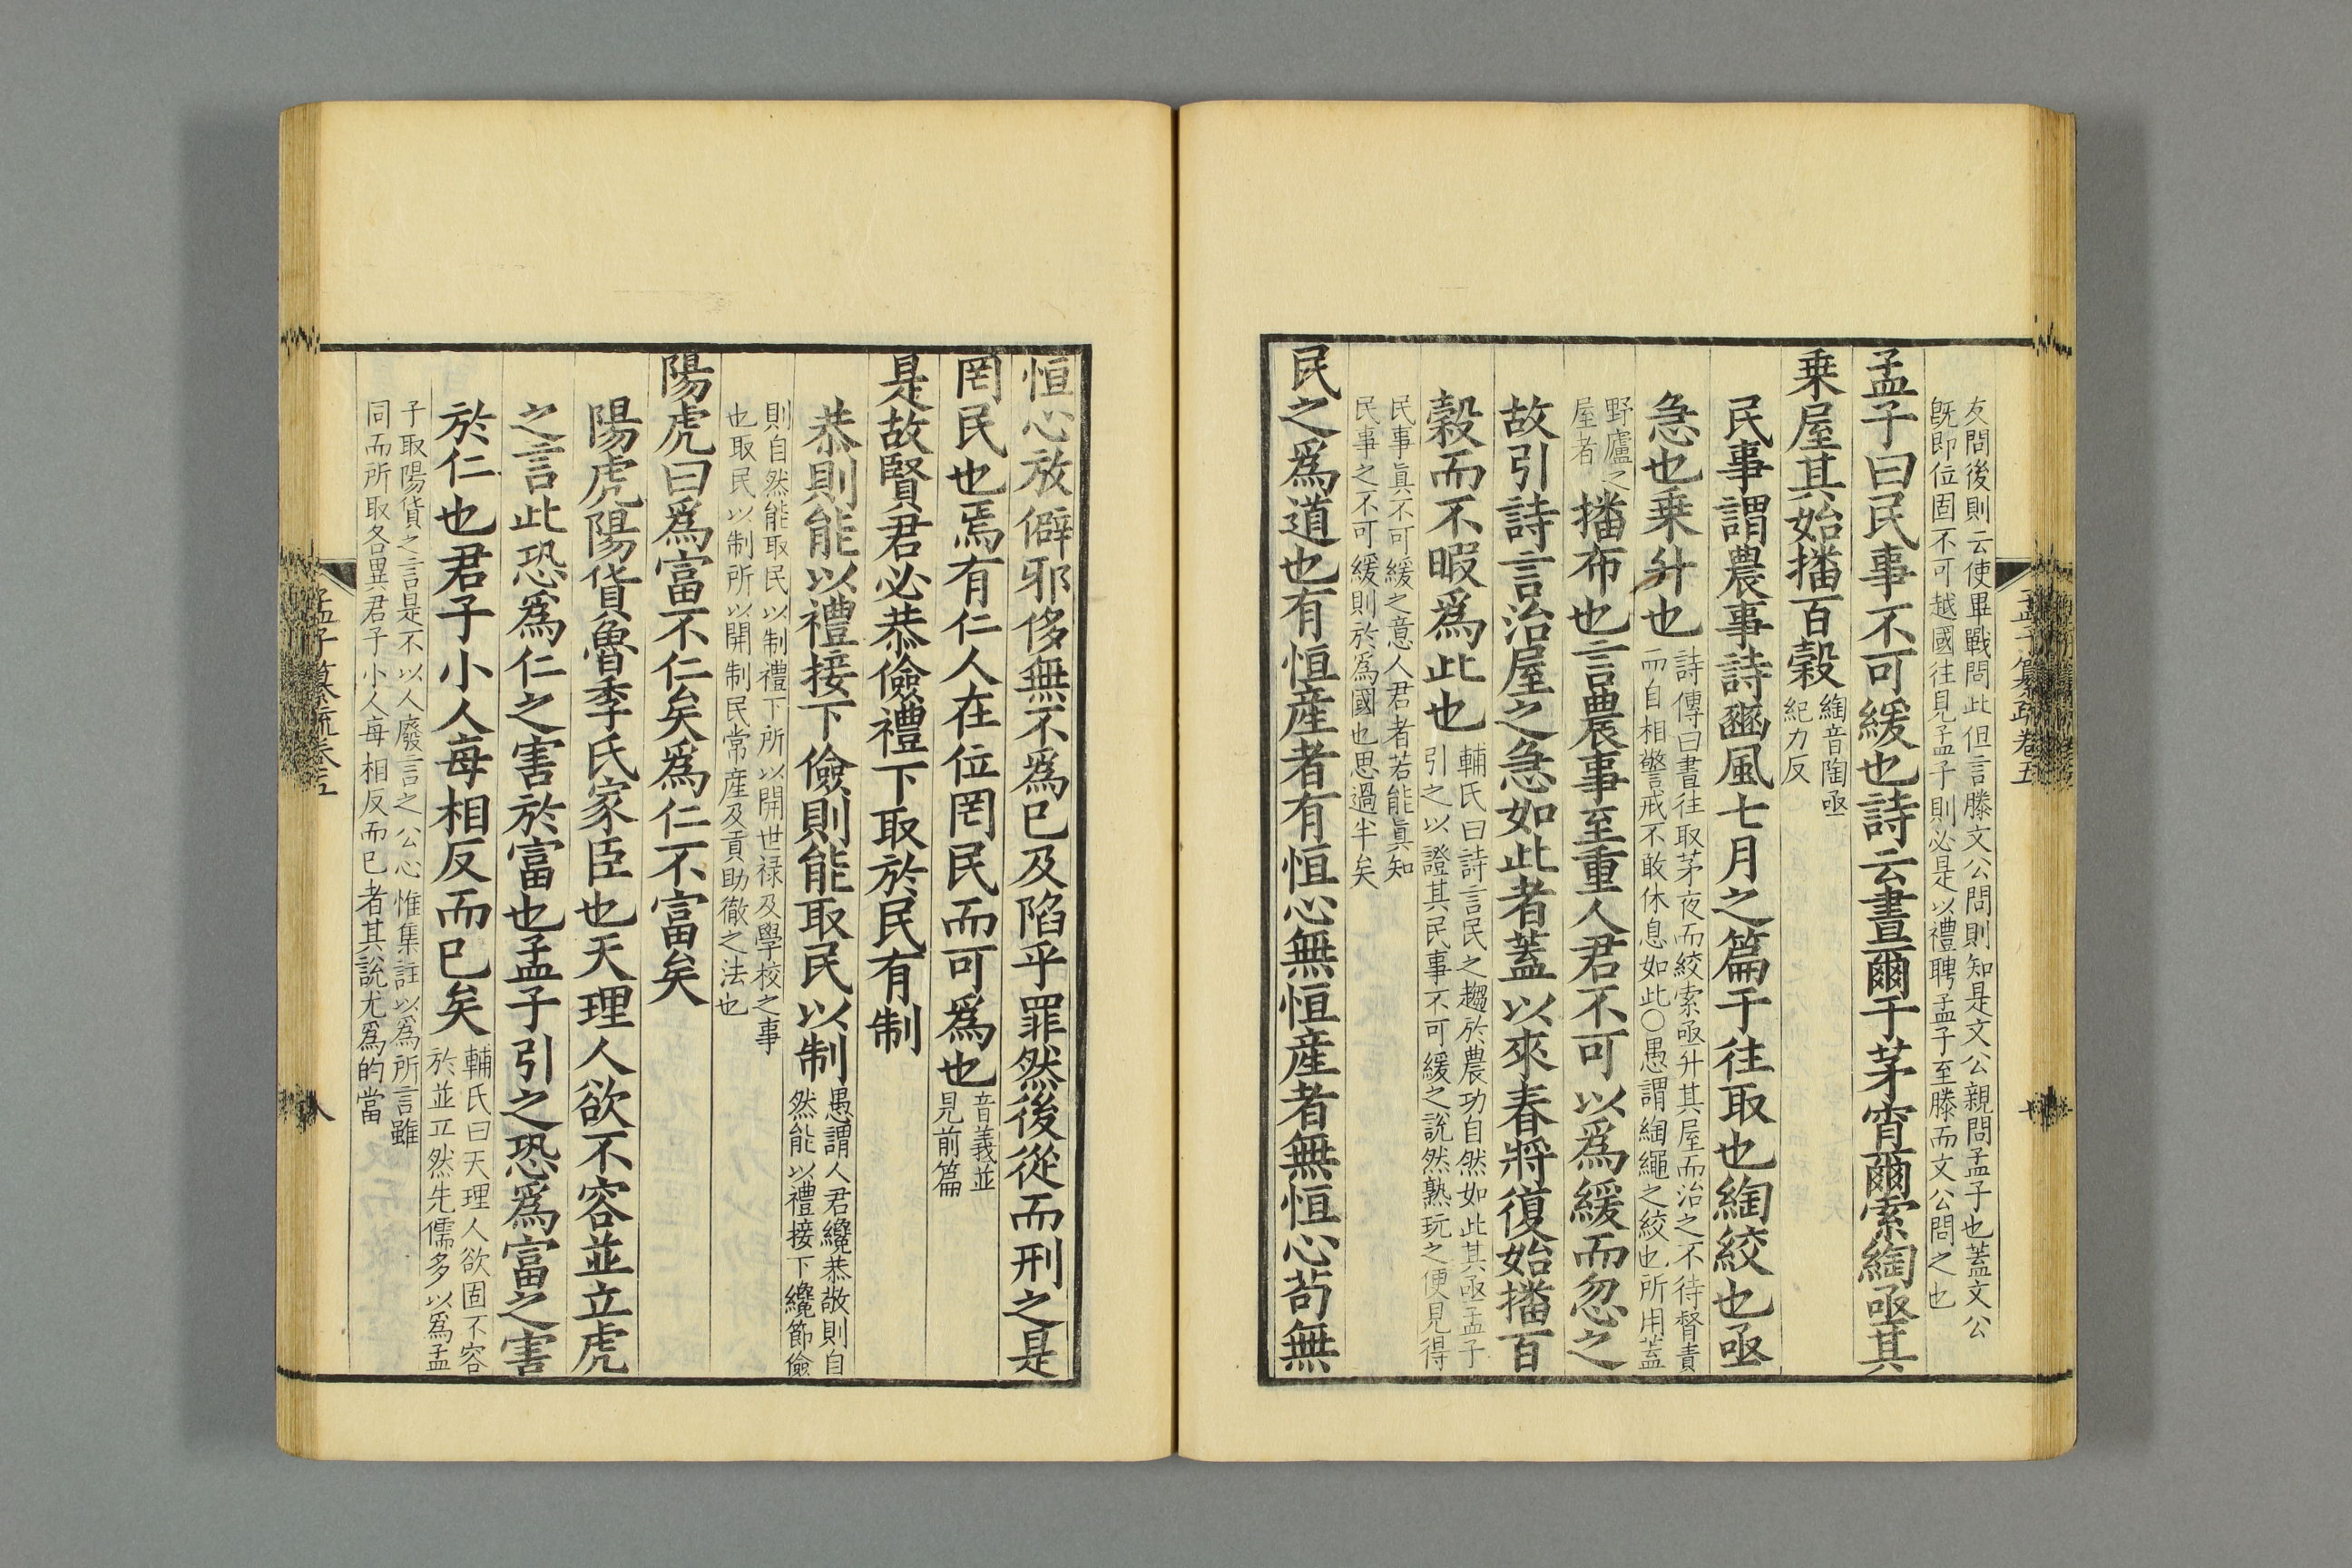 友問後則云使畢戰問此但言滕文公問則知是文公親問孟子也蓋文公
既即位固不可越國往見孟子則必是以禮聘孟子至滕而文公問之也
孟子曰民事不可緩也詩云晝爾于茅宵爾索綯亟其
乗屋其始播百糓綯音陶亟
紀力反
民事謂農事詩豳風七月之篇于往取也綯絞也亟
急也乗升也詩傳曰晝往取茅夜而絞索亟升其屋而治之不待督責
而自相警戒不敢休息如此○愚謂綯繩之絞也所用蓋
野廬之
屋者播布也言農事至重人君不可以爲緩而忽之
故引詩言治屋之急如此者蓋以來春將復始播百
糓而不暇爲此也輔氏曰詩言民之趨於農功自然如此其亟孟子
引之以證其民事不可緩之説然熟玩之便見得
民事眞不可緩之意人君者若能眞知
民事之不可緩則於爲國也思過半矣
民之爲道也有恒産者有恒心無恒産者無恒心苟無
孟子纂疏卷五
恒心放僻邪侈無不爲已及陷乎罪然後從而刑之是
罔民也焉有仁人在位罔民而可爲也音義並
見前篇
是故賢君必恭儉禮下取於民有制
恭則能以禮接下儉則能取民以制愚謂人君纔恭敬則自
然能以禮接下纔節儉
則自然能取民以制禮下所以開世禄及學校之事
也取民以制所以開制民常産及貢助徹之法也
陽虎曰爲富不仁矣爲仁不富矣
陽虎陽貨魯季氏家臣也天理人欲不容並立虎
之言此恐爲仁之害於富也孟子引之恐爲富之害
於仁也君子小人每相反而已矣輔氏曰天理人欲固不容
於並立然先儒多以爲孟
子取陽貨之言是不以人廢言之公心惟集註以爲所言雖
同而所取各異君子小人每相反而已者其説尤爲的當
孟子纂疏卷五
八